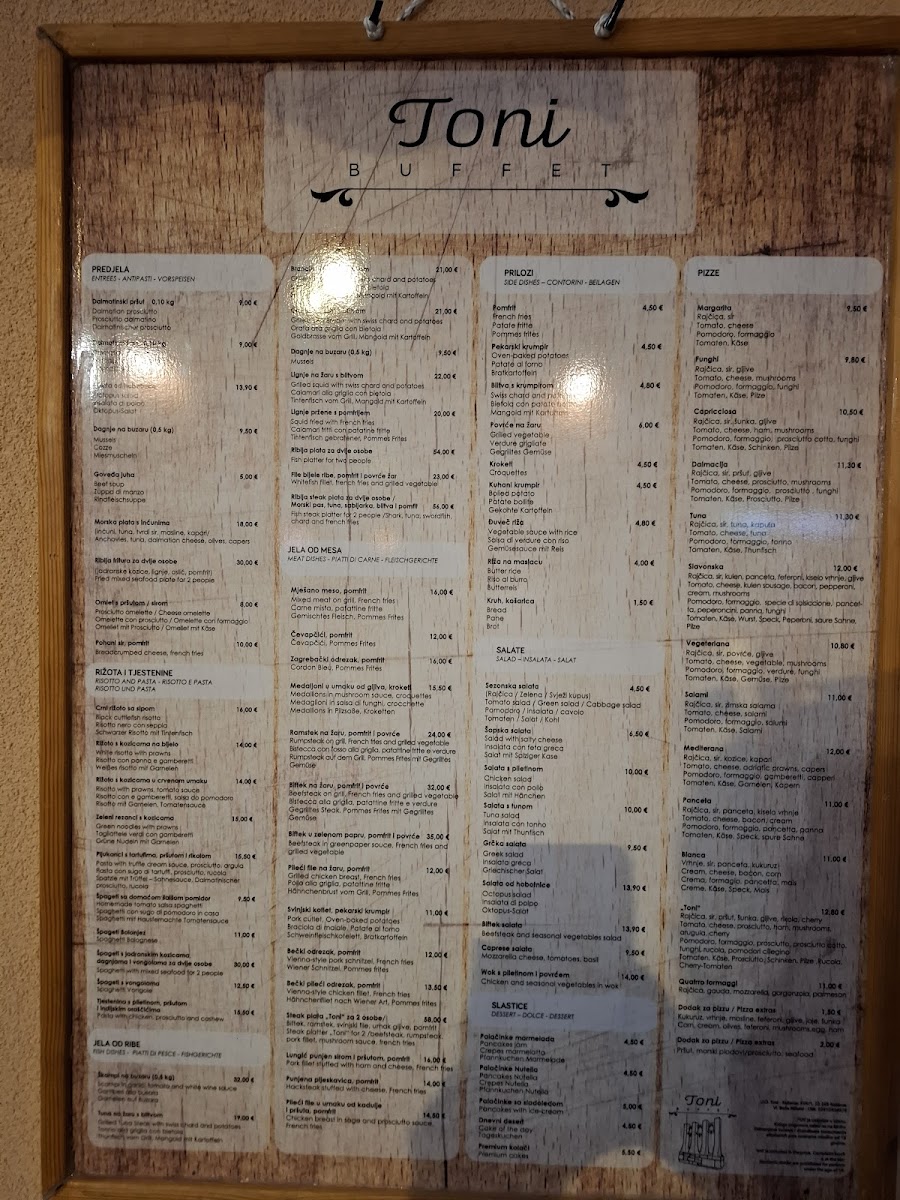 Toni
BUFFET
PREDJELA
ENTREES - ANTIPASTI - VORSPEISEN
Dalmatinski pršut 0,10 kg 9,00 €
Dalmatian prosciutto
Prosciutto dalmatino
Dalmatinischer prosciutto
9,00 €
13,90 €
Octopus salad
Insalata di polpo
Oktopus-Salat
Dagnje na buzaru (0,5 kg) 9,50 €
Mussels
Cozze
Miesmuscheln
Goveđa juha 5,00 €
Beef soup
Zuppa di manzo
Rindfleischsuppe
Morska plata s inćunima 18,00 €
Inćuni, tuna, tvrdi sir, masline, kapari/
Anchovies, tuna, dalmatian cheese, olives, capers
Riblja fritura za dvije osobe 30,00 €
(jadranske kozice, lignje, oslić, pomfrit)
Fried mixed seafood plate for 2 people
Omlet s pršutom / sirom 8,00 €
Prosciutto omelette / Cheese omelette
Omelette con prosciutto / Omelette con formaggio
Omelet mit Prosciutto / Omelet mit Käse
Pohani sir, pomfrit 10,00 €
Breadcrumbed cheese, french fries
RIŽOTA I TJESTENINE
RISOTTO AND PASTA - RISOTTO E PASTA
RISOTTO UND PASTA
Crni rižoto sa sipom 16,00 €
Black cuttlefish risotto
Risotto nero con seppia
Schwarzer Risotto mit Tintenfisch
Rižoto s kozicama na bijelo 14,00 €
White risotto with prawns
Risotto con panna e gamberetti
Weißes risotto mit Garnelen
Rižoto s kozicama u crvenom umaku 14,00 €
Risotto with prawns, tomato sauce
Risotto con e gamberetti, salsa do pomodoro
Risotto mit Garnelen, Tomatensauce
Zeleni rezanci s kozicama 15,00 €
Green noodles with prawns
Tagliattele verdi con gamberetti
Grüne Nudeln mit Garnelen
Pljukanci s tartufima, pršutom i rikolom 15,50 €
Pasta with truffle cream sauce, prosciutto, arugula
Pasta con sugo di tartufi, prosciutto, rucola
prosciutto, rucola
Špageti sa domaćom šalšom pomidor 9,50 €
Homemade tomato salsa spaghetti
Spaghetti con sugo di pomodoro in casa
Spaghetti mit Haustemachte Tomatensauce
Špageti bolonjez 11,00 €
Spaghetti bolognese
Špageti s jadranskim kozicama,
dagnjama i vongolama za dvije osobe 30,00 €
Spaghetti with mixed seafood for 2 people
Špageti s vongolama
Spaghetti vongole
Tjestenina s piletinom, pršutom
i indijskim oraščićima 15,50 €
Pasta with chicken, prosciutto and cashew
JELA OD RIBE
FISH DISHES - PIATTI DI PESCE - FISHGERICHTE
Škampi na buzaru (0,4 kg) 32,00 €
Scampi in garlic, tomato and white wine sauce
Tuna na žaru s blitvom 19,00 €
Grilled Tuna steak with swiss chard and potatoes
Thunfisch vom Grill, Mangold mit Kartoffeln
21,00 €
chard and potatoes
Mangold mit Kartoffeln
21,00 €
with swiss chard and potatoes
Orata alla griglia con bietola
Goldbrasse vom Grill, Mangold mit Kartoffeln
Dagnje na buzaru (0,5 kg) 9,50 €
Mussels
Lignje na žaru s blitvom 22,00 €
Grilled squid with swiss chard and potatoes
Calamari alla griglia con bietola
Tintenfisch vom Grill, Mangold mit Kartoffeln
Lignje pržene s pomfritjem 20,00 €
Squid fried with French fries
Calamari fritti con patatine fritte
Tintenfisch gebratener, Pommes Frites
Riblja plata za dvije osobe 54,00 €
Fish platter for two people
File bijele ribe, pomfrit i povrće žar 23,00 €
Whitefish fillet, french fries and grilled vegetable
Riblja steak plata za dvije osobe /
Morski pas, tuna, sabljarka, blitva i pomfrit 56,00 €
Fish steak platter for 2 people /Shark, tuna, swordfish,
chard and french fries
JELA OD MESA
MEAT DISHES - PIATTI DI CARNE - FLEISCHGERICHTE
Mješano meso, pomfrit 16,00 €
Mixed meat on grill, French fries
Carne mista, patatine fritte
Gemischtes Fleisch, Pommes Frites
Čevapčići, pomfrit 12,00 €
Čevapčići, Pommes Frites
Zagrebački odrezak, pomfrit 16,00 €
Cordon Bleu, Pommes Frites
Medaljoni u umaku od gljiva, kroketi 15,50 €
Medallions in mushroom sauce, croquettes
Medaglioni in salsa di funghi, crocchette
Medaillons in Pilzsoße, Kroketten
Ramstek na žaru, pomfrit i povrće 24,00 €
Rumpsteak on grill, French fries and grilled vegetable
Bistecca con l'osso alla griglia, patatine fritte e verdure
Rumpsteak auf dem Grill, Pommes Frites mit Gegrilltes
Gemüse
Biftek na žaru, pomfrit i povrće 32,00 €
Beefsteak on grill, French fries and grilled vegetable
Bistecca alla griglia, patatine fritte e verdure
Gegrilltes Steak, Pommes Frites mit Gegrilltes
Gemüse
Biftek u zelenom papru, pomfrit i povrće 35,00 €
Beefsteak in greenpaper sauce, French fries and
grilled vegetable
Pileći file na žaru, pomfrit 12,00 €
Grilled chicken breast, French fries
Pollo alla griglia, patatine fritte
Hähnchenbrust vom Grill, Pommes Frites
Svinjski kotlet, pekarski krumpir 11,00 €
Pork cutlet, Oven-baked potatoes
Braciola di maiale, Patate al forno
Schweinfleischkotelett, Bratkartoffeln
Bečki odrezak, pomfrit 12,00 €
Vienna-style pork schnitzel, French fries
Wiener Schnitzel, Pommes frites
Bečki pileći odrezak, pomfrit 13,50 €
Vienna-style chicken filet, French fries
Hähnchenfilet nach Wiener Art, Pommes frites
Steak plata „Toni" za 2 osobe/ 58,00 €
Biftek, ramstek, svinjski file, umak gljive, pomfrit
Steak platter „Toni" for 2 /beefsteak, rumpsteak,
pork filet, mushroom sauce, french fries
Lungić punjen sirom i pršutom, pomfrit 16,00 €
Pork filet stuffed with ham and cheese, French fries
Punjena pljeskavica, pomfrit 14,00 €
Hacksteak stuffed with cheese, French fries
Pileći file u umaku od kadulje
i pršuta, pomfrit 14,50 €
Chicken breast in sage and prsciutto sauce,
French fries
PRILOZI
SIDE DISHES – CONTORINI – BEILAGEN
Pomfrit 4,50 €
French fries
Patate fritte
Pommes frites
Pekarski krumpir 4,50 €
Oven-baked potatoes
Patate al forno
Bratkartoffeln
Blitva s krumpirom 4,80 €
Swiss chard and potatoes
Bietola con patate
Mangold mit Kartoffeln
Povrće na žaru 6,00 €
Grilled vegetable
Verdure grigliate
Gegrilltes Gemüse
Kroketi 4,50 €
Croquettes
Kuhani krumpir 4,50 €
Boiled potato
Patate bollite
Gekohte Kartoffeln
Đuveč riža 4,80 €
Vegetable sauce with rice
Salsa di verdure con riso
Gemüsesauce mit Reis
Riža na maslacu 4,00 €
Butter rice
Riso al burro
Butterreis
Kruh, košarica 1,50 €
Bread
Pane
Brot
SALATE
SALAD – INSALATA - SALAT
Sezonska salata 4,50 €
(Rajčica / Zelena / Svježi kupus)
Tomato salad / Green salad / Cabbage salad
Pomodoro / Insalata / cavolo
Tomaten / Salat / Kohl
Šopska salata 6,50 €
Salad with salty cheese
Insalata con feta greca
Salat mit Salziger Kase
Salata s piletinom 10,00 €
Chicken salad
Insalata con pollo
Salat mit Hänchen
Salata s tunom 10,00 €
Tuna salad
Insalata con tonno
Salat mit Thunfisch
Grčka salata 9,50 €
Greek salad
Insalata greca
Griechischer Salat
Salata od hobotnice 13,90 €
Octopus salad
Insalata di polpo
Oktopus-Salat
Biftek salata 13,90 €
Beefsteak and seasonal vegetables salad
Caprese salata 9,50 €
Mozzarella cheese, tomatoes, basil
Wok s piletinom i povrćem 14,00 €
Chicken and seasonal vegetables in wok
SLASTICE
DESSERT – DOLCE - DESSERT
Palačinke marmelada 4,50 €
Pancakes jam
Crepes marmelatta
Pfannkuchen Marmelade
Palačinke Nutella 4,50 €
Pancakes Nutella
Crepes Nutella
Pfannkuchen Nutella
Palačinke sa sladoledom 5,00 €
Pancakes with ice-cream
Dnevni desert 4,50 €
Cake of the day
Tageskuchen
Premium kolači 5,50 €
Premium cakes
PIZZE
Margarita 9,50 €
Rajčica, sir
Tomato, cheese
Pomodoro, formaggio
Tomaten, Käse
Funghi 9,80 €
Rajčica, sir, gljive
Tomato, cheese, mushrooms
Pomodoro, formaggio, funghi
Tomaten, Käse, Pilze
Capricciosa 10,50 €
Rajčica, sir, šunka, gljive
Tomato, cheese, ham, mushrooms
Pomodoro, formaggio, prosciutto cotto, funghi
Tomaten, Käse, Schinken, Pilze
Dalmacija 11,30 €
Rajčica, sir, pršut, gljive
Tomato, cheese, prosciutto, mushrooms
Pomodoro, formaggio, prosciutto, funghi
Tomaten, Käse, Prosciutto, Pilze
Tuna 11,30 €
Rajčica, sir, tuna, kapula
Tomato, cheese, tuna
Pomodoro, formaggio, tonno
Tomaten, Käse, Thunfisch
Slavonska 12,00 €
Rajčica, sir, kulen, panceta, feferoni, kiselo vrhnje, gljive
Tomato, cheese, kulen sausage, bacon, pepperoni,
cream, mushrooms
Pomodoro, formaggio, specie di salsiccione, pancet-
ta, peperoncini, panna, funghi
Tomaten, Käse, Wurst, Speck, Peperoni, saure Sahne,
Pilze
Vegeteriana 10,80 €
Rajčica, sir, povrće, gljive
Tomato, cheese, vegetable, mushrooms
Pomodoro, formaggio, verdure, funghi
Tomaten, Käse, Gemüse, Pilze
Salami 11,00 €
Rajčica, sir, zimska salama
Tomato, cheese, salami
Pomodoro, formaggio, salumi
Tomaten, Käse, Salami
Mediterana 12,00 €
Rajčica, sir, kozice, kapari
Tomato, cheese, adriatic prawns, capers
Pomodoro, formaggio, gamberetti, capperi
Tomaten, Käse, Garnelen, Kapern
Panceta 11,00 €
Rajčica, sir, panceta, kisela vrhnje
Tomato, cheese, bacon, cream
Pomodoro, formaggio, pancetta, panna
Tomaten, Käse, Speck, saure Sahne
Bianca 11,00 €
Vrhnje, sir, panceta, kukuruz
Cream, cheese, bacon, corn
Crema, formaggio, pancetta, mais
Creme, Käse, Speck, Mais
„Toni" 12,80 €
Rajčica, sir, pršut, šunka, gljive, rikola, cherry
Tomato, cheese, prosciutto, ham, mushrooms,
arugula, cherry
Pomodoro, formaggio, prosciutto, prosciutto cotto,
funghi, rucola, pomodori ciliegino
Tomaten, Käse, Prosciutto, Schinken, Pilze, Rucola,
Cherry-Tomaten
Quattro formaggi 11,00 €
Rajčica, gauda, mozzarella, gorgonzola, parmesan
Dodak za pizzu / Pizza extras 1,50 €
Kukuruz, vrhnje, masline, feferoni, gljive, jaje, šunka
Corn, cream, olives, feferoni, mushrooms, egg, ham
Dodak za pizzu / Pizza extras 2,00 €
Pršut, morski plodovi/prosciutto, seafood
Toni
BUFFET